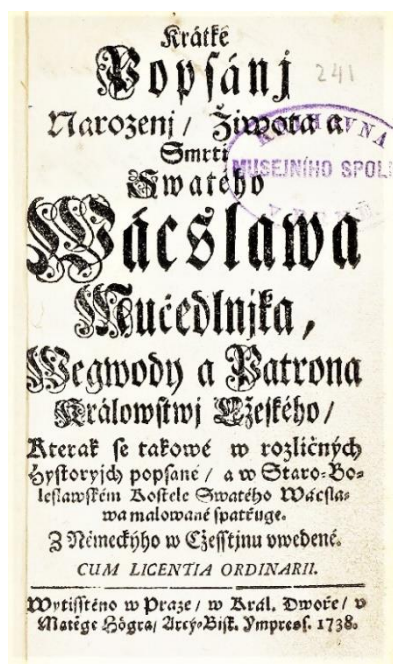 Krátké
Popsánj
241
Narozenj / Žiwota a
Smrti
Swatého
KNIHOVNA
MUSEJNÍHO SPOL
Wácslawa
Mučedlnjka,
Wegwody a Patrona
Králowstwj Cžeského /
Kterak se takowé w rozličných
Hystoryjch popsané / a w Staro-Bo-
leslawském Kostele Swatého Wácsla-
wa malowané spatřuge.
Z Německýho w Cžesstjnu uwedené.
CUM LICENTIA ORDINARII.
Wytisstěno w Praze / w Král. Dwoře / v
Matěge Högra / Arcy-Bisk. Ympress. 1738.